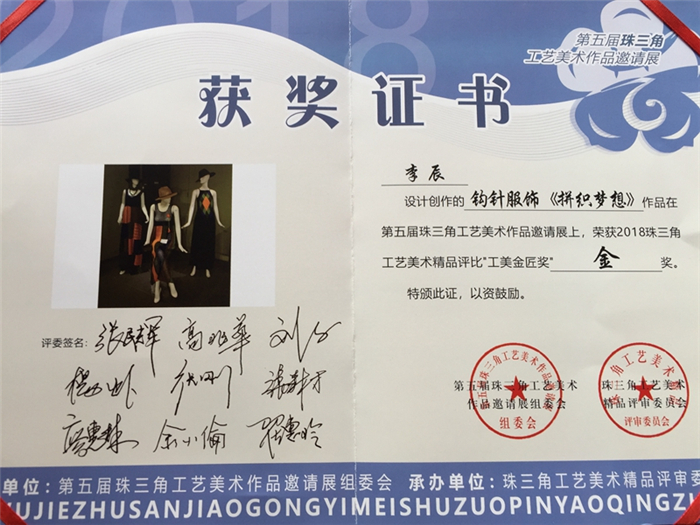 2018
第五届珠三角
工艺美术作品邀请展
获奖证书
李辰
设计创作的 钩针服饰《拼织梦想》 作品在
第五届珠三角工艺美术作品邀请展上，荣获2018珠三角
工艺美术精品评比"工美金匠奖" 金 奖。
特颁此证，以资鼓励。
评委签名：张民辉 高兆华 刘
余小倫
第五届珠三角工艺美术
作品邀请展组委会
组委会
珠三角工艺美术
精品评审委员会
评审委员会
单位：第五届珠三角工艺美术作品邀请展组委会 承办单位：珠三角工艺美术精品评审委
UJIEZHUSANJIAOGONGYIMEISHUZUOPINYAOQINGZ